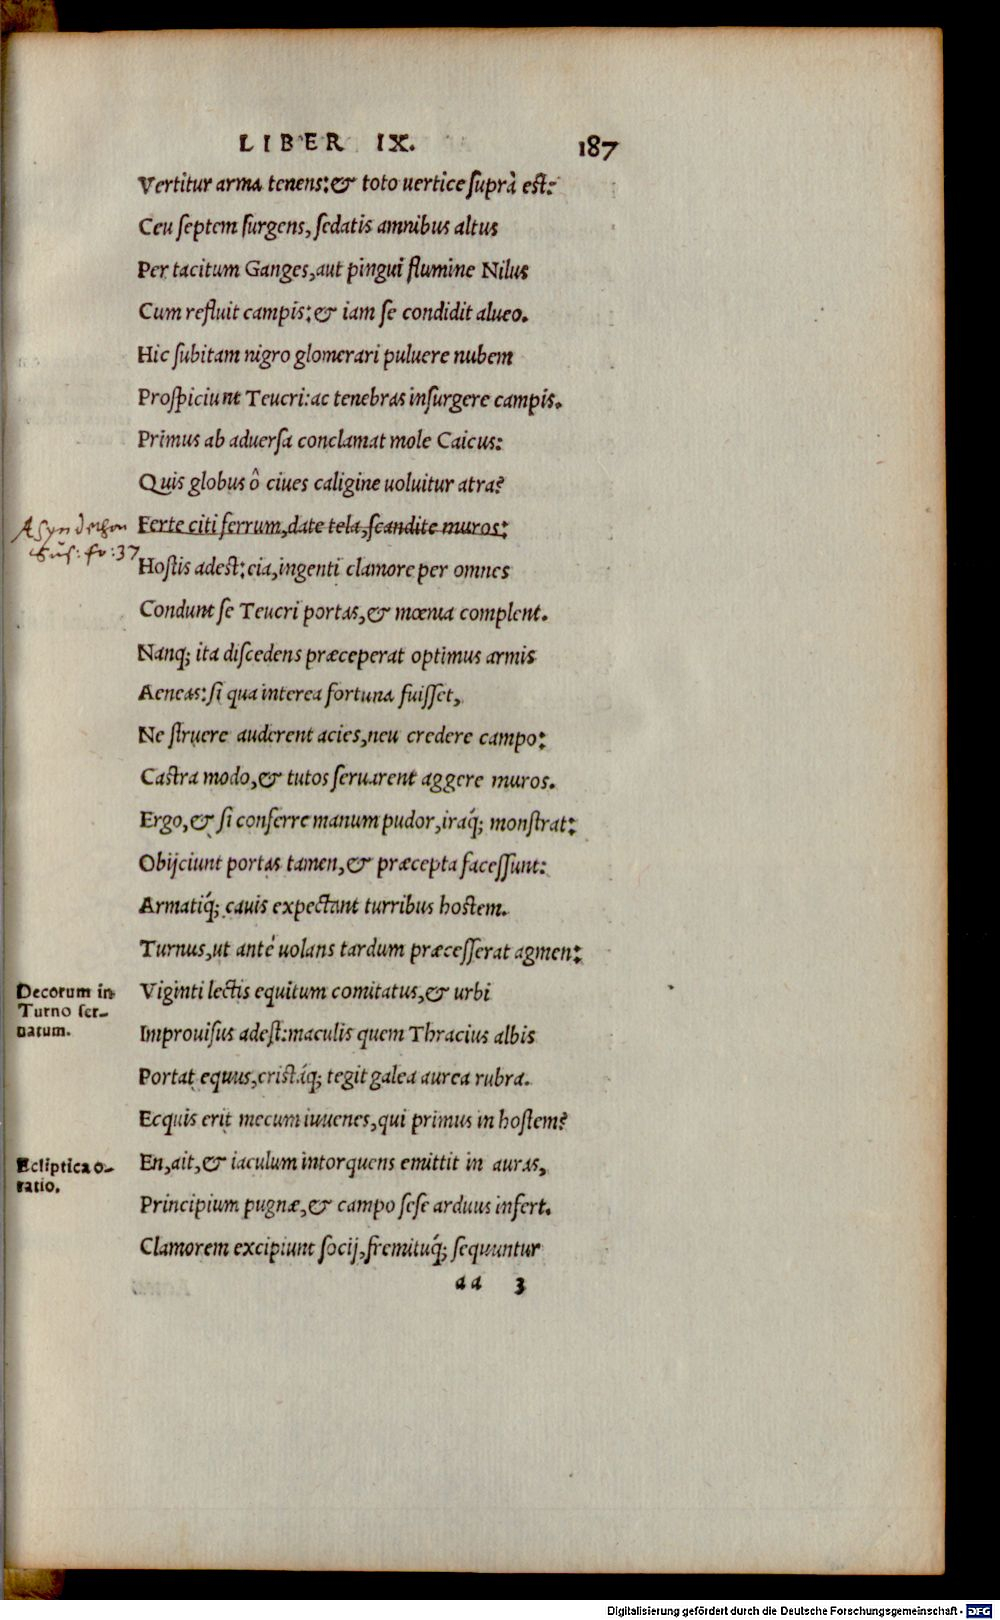 LIBER IX. 187
Vertitur arma tenens: & toto uertice suprà est:
Ceu septem surgens, sedatis amnibus altus
Per tacitum Ganges, aut pingui flumine Nilus
Cum refluit campis: & iam se condidit alueo.
Hic subitam nigro glomerari puluere nubem
Prospiciunt Teucri: ac tenebras insurgere campis.
Primus ab aduersa conclamat mole Caicus:
Quis globus ô ciues caligine uoluitur atra?
Asyndethon
Ferte citi ferrum, date tela, scandite muros:
Sus: fo: 37
Hostis adest: eia, ingenti clamore per omnes
Condunt se Teucri portas, & mœnia complent.
Nanq; ita discedens præceperat optimus armis
Aeneas: si qua interea fortuna fuisset,
Ne struere auderent acies, neu credere campo:
Castra modo, & tutos seruarent aggere muros.
Ergo, & si conferre manum pudor, iraq́; monstrat:
Obijciunt portas tamen, & præcepta facessunt:
Armatiq́; cauis expectant turribus hostem.
Turnus, ut antè uolans tardum præcesserat agmen:
Decorum in
Turno ser-
uatum.
Viginti lectis equitum comitatus, & urbi
Improuisus adest: maculis quem Thracius albis
Portat equus, cristáq; tegit galea aurea rubra.
Ecquis erit mecum iuuenes, qui primus in hostem?
Ecliptica o-
ratio.
En, ait, & iaculum intorquens emittit in auras,
Principium pugnæ, & campo sese arduus infert.
Clamorem excipiunt socij, fremituq́; sequuntur
aa 3
Digitalisierung gefördert durch die Deutsche Forschungsgemeinschaft - DFG